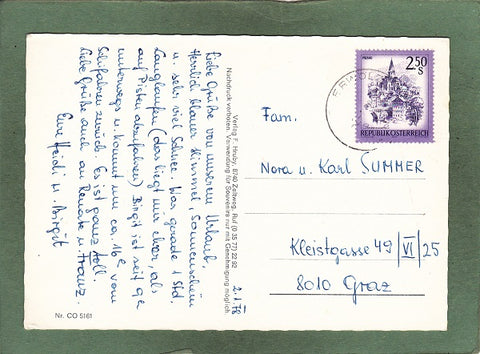 Liebe Grüße von unserem Urlaub,
Herrlich blauer Himmel, Sonnenschein
u. sehr viel Schnee. War gerade 1 Std.
Langlaufen (das liegt mir eher, als
auf Pisten abzufahren) Birgit ist seit 9h
unterwegs u. kommt um ca. 16h vom
Schifahren zurück. Es ist ganz toll.
Liebe Grüße auch an Renate u. Franz.
Eure Heidi u. Birgit
2.1.78
Nachdruck verboten. Verwendung für Souvenirs nur mit Genehmigung möglich
Verlag F. Hruby, 8740 Zeltweg, Ruf (0 35 77) 22 92
Nr. CO 5161
2.50
S
REPUBLIK ÖSTERREICH
Fam.
Nora u. Karl SUMMER
Kleistgasse 49 | VI | 25
8010 Graz